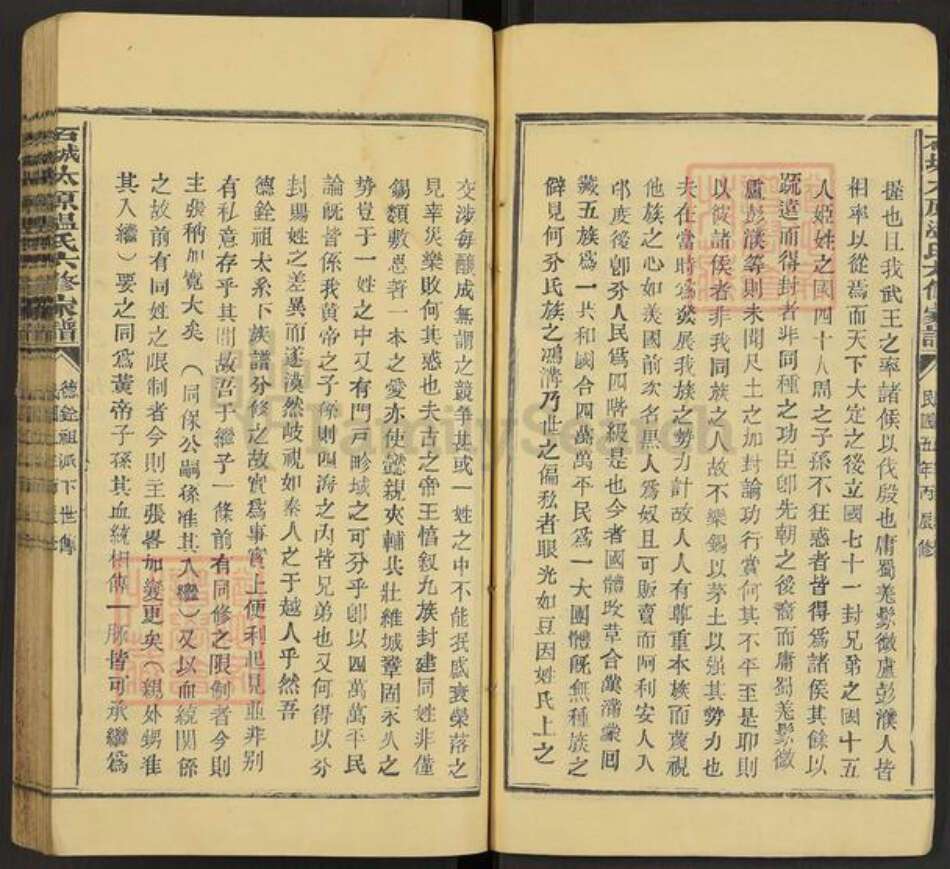 握也且我武王之率諸候以伐殷也庸蜀羌髳微盧彭濮人皆
相率以從焉而天下大定之後立國七十一封兄弟之國十五
人姬姓之國四十人周之子孫不狂惑者皆得爲諸侯其餘以
疏遠而得封者非同種之功臣卽先朝之後裔而庸蜀羌髳微
盧彭濮等則未聞尺土之加封論功行賞何其不平至是耶則
以彼諸侯者非我同族之人故不樂錫以茅土以强其勢力也
夫在當時爲發展我族之勢力計故人人有尊重本族而蔑視
他族之心如美國前次名黑人爲奴且可販賣而阿利安人入
印度後卽分人民爲四階級是也今者國體改革合漢滿蒙回
藏五族爲一共和國合四萬萬平民爲一大團體旣無種族之
僻見何分氏族之鴻溝乃世之偏私者眼光如豆因姓氏上之
民國五年丙辰修
石城太原温氏六修宗譜
德銓祖派下世傳
交涉每釀成無謂之競爭甚或一姓之中不能泯盛衰榮落之
見幸災樂敗何其惑也夫古之帝王惇叙九族封建同姓非僅
錫類敷恩著一本之愛亦使懿親夾輔共壯維城鞏固永久之
勢豈于一姓之中又有門戸畛域之可分乎卽以四萬萬平民
論旣皆係我黃帝之子孫則四海之內皆兄弟也又何得以分
封賜姓之差異而遂漠然岐視如秦人之于越人乎然吾
德銓祖太系下族譜分修之故實爲事實上便利起見並非别
有私意存乎其間故吾于繼子一條前有同修之限制者今則
主張稍加寬大矣(同係公嗣孫准其入繼)又以血統関係
之故前有同姓之限制者今則主張畧加變更矣(親外甥准
其入繼)要之同爲黃帝子孫其血統相傳一脉皆可承繼爲
FamilySearch